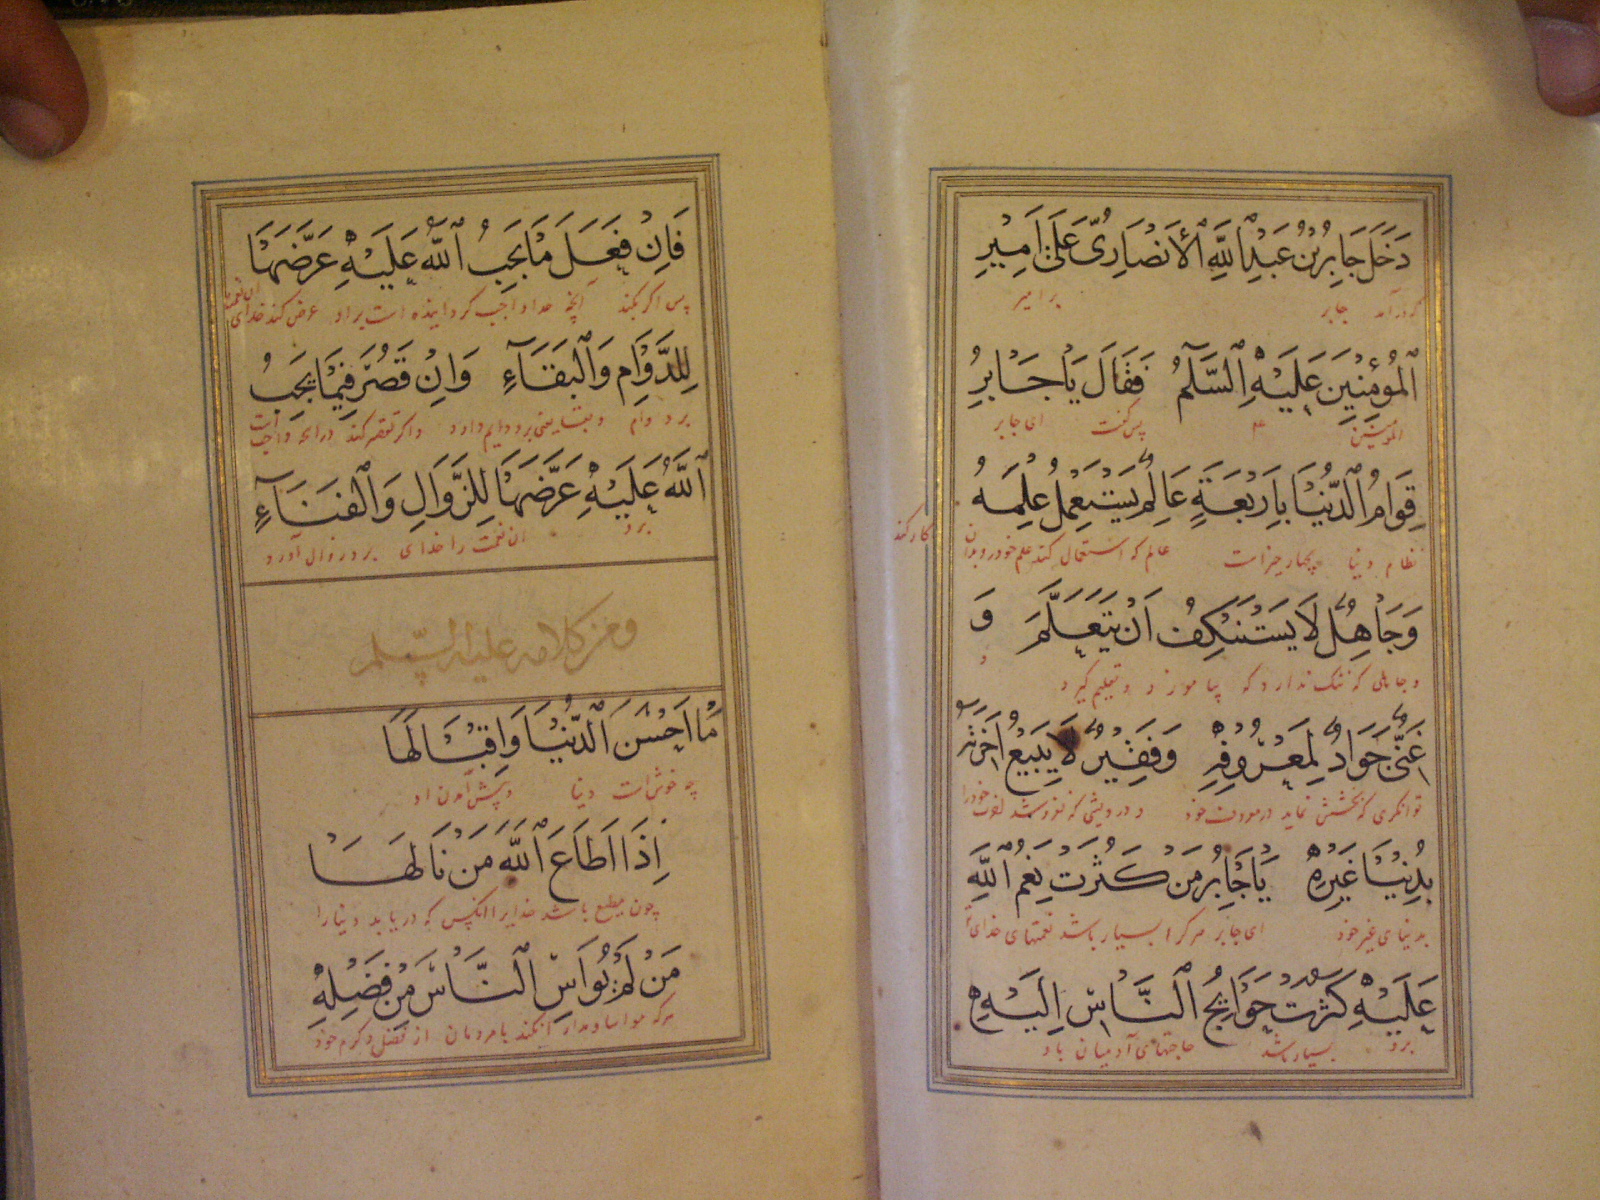 دَخَلَ جَابِرُ بْنُ عَبْدِ اللَّهِ الْأَنْصَارِىُّ عَلَىٰ اَمِيْرِ
درآمد جابر بر امیر
الْمُؤْمِنِيْنَ عَلَيْهِ السَّلٰمُ فَقَالَ يَا جَابِرُ
المؤمنین پس گفت ای جابر
قِوَامُ الدُّنْيَا بِاَرْبَعَةٍ عَالِمٌ يَسْتَعْمِلُ عِلْمَهُ
نظام دنیا بچهار چیز است عالم که استعمال کند علم خود و بدان کار کند
وَجَاهِلٌ لَا يَسْتَنْكِفُ اَنْ يَتَعَلَّمَ وَ
و جاهلی که ننگ ندارد که بیاموزد و تعلیم گیرد و
غَنِىٌّ جَوَادٌ بِمَعْرُوْفِهِ وَفَقِيْرٌ لَا يَبِيْعُ اٰخِرَتَهُ
توانگری که بخشش نماید در معروف خود و درویشی که نفروشد آخرت خود را
بِدُنْيَا غَيْرِهِ يَا جَابِرُ مَنْ كَثُرَتْ نِعَمُ اللَّهِ
بدنیای غیر خود ای جابر هر که را بسیار باشد نعمتهای خدای
عَلَيْهِ كَثُرَتْ حَوَائِجُ النَّاسِ اِلَيْهِ
برو بسیار باشد حاجتهای آدمیان باو
فَاِنْ فَعَلَ مَا يَجِبُ اللَّهُ عَلَيْهِ عَرَّضَهَا
پس اگر بکند آنچه خدا واجب گردانیده است بر او عرض کند خدای آن نعمت
لِلدَّوَامِ وَالْبَقَاءِ وَاِنْ قَصَّرَ فِيْمَا يَجِبُ
بر دوام و بقا یعنی برو دایم دارد و اگر تقصیر کند در آنچه واجب است
اللَّهُ عَلَيْهِ عَرَّضَهَا لِلزَّوَالِ وَالْفَنَاءِ
برو آن نعمت را خدای بر در زوال آورد
ومن كلامه عليه السّلم
مَا اَحْسَنَ الدُّنْيَا وَاِقْبَالَهَا
چه خوش است دنیا و پیش آمدن او
اِذَا اَطَاعَ اللَّهَ مَنْ نَالَهَا
چون مطیع باشد خدایرا آنکس که دریابد دنیا را
مَنْ لَمْ يُوَاسِ النَّاسَ مِنْ فَضْلِهِ
هر که مواسا و مدارا نکند با مردمان از فضل و کرم خود